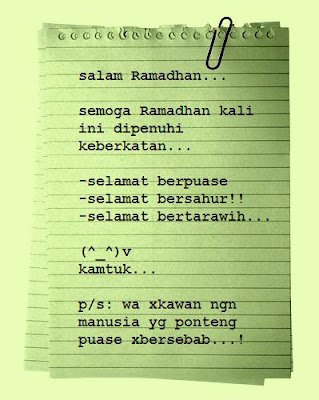 salam Ramadhan...
semoga Ramadhan kali
ini dipenuhi
keberkatan...
-selamat berpuase
-selamat bersahur!!
-selamat bertarawih...
(^_^)v
kamtuk...
p/s: wa xkawan ngn
manusia yg ponteng
puase xbersebab...!